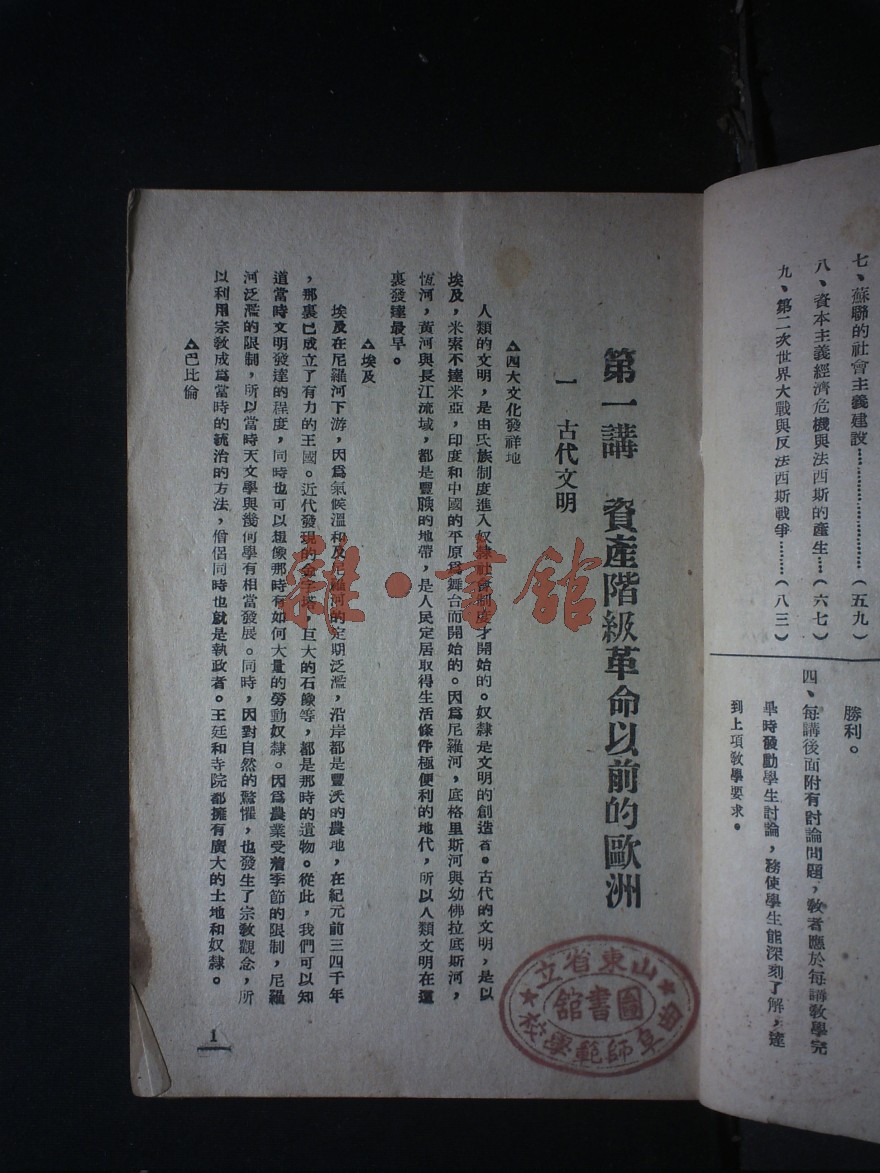 七、蘇聯的社會主義建設………………(五九)
八、資本主義經濟危機與法西斯的產生……(六七)
九、第二次世界大戰與反法西斯戰爭………(八三)
勝利。
四、每講後面附有討論問題,教者應於每講教學完
畢時發動學生討論,務使學生能深刻了解,達
到上項教學要求。
第一講 資產階級革命以前的歐洲
一 古代文明
▲四大文化發祥地
人類的文明,是由氏族制度進入奴隸社會制度才開始的。奴隸是文明的創造者。古代的文明,是以
埃及,米索不達米亞,印度和中國的平原爲舞台而開始的。因爲尼羅河,底格里斯河與幼佛拉底斯河,
恆河,黃河與長江流域,都是豐腴的地帶,是人民定居取得生活條件極便利的地代,所以人類文明在這
裏發達最早。
▲埃及
埃及在尼羅河下游,因爲氣候溫和及尼羅河的定期泛濫,沿岸都是豐沃的農地,在紀元前三四千年
,那裏已成立了有力的王國。近代發現的金字塔,巨大的石像等,都是那時的遺物。從此,我們可以知
道當時文明發達的程度,同時也可以想像那時有如何大量的勞動奴隸。因爲農業受着季節的限制,尼羅
河泛濫的限制,所以當時天文學與幾何學有相當發展。同時,因對自然的驚懼,也發生了宗教觀念,所
以利用宗教成爲當時的統治的方法,僧侶同時也就是執政者。王廷和寺院都擁有廣大的土地和奴隸。
▲巴比倫
1
山東省立
圖書館
曲阜師範學校
雜·書館